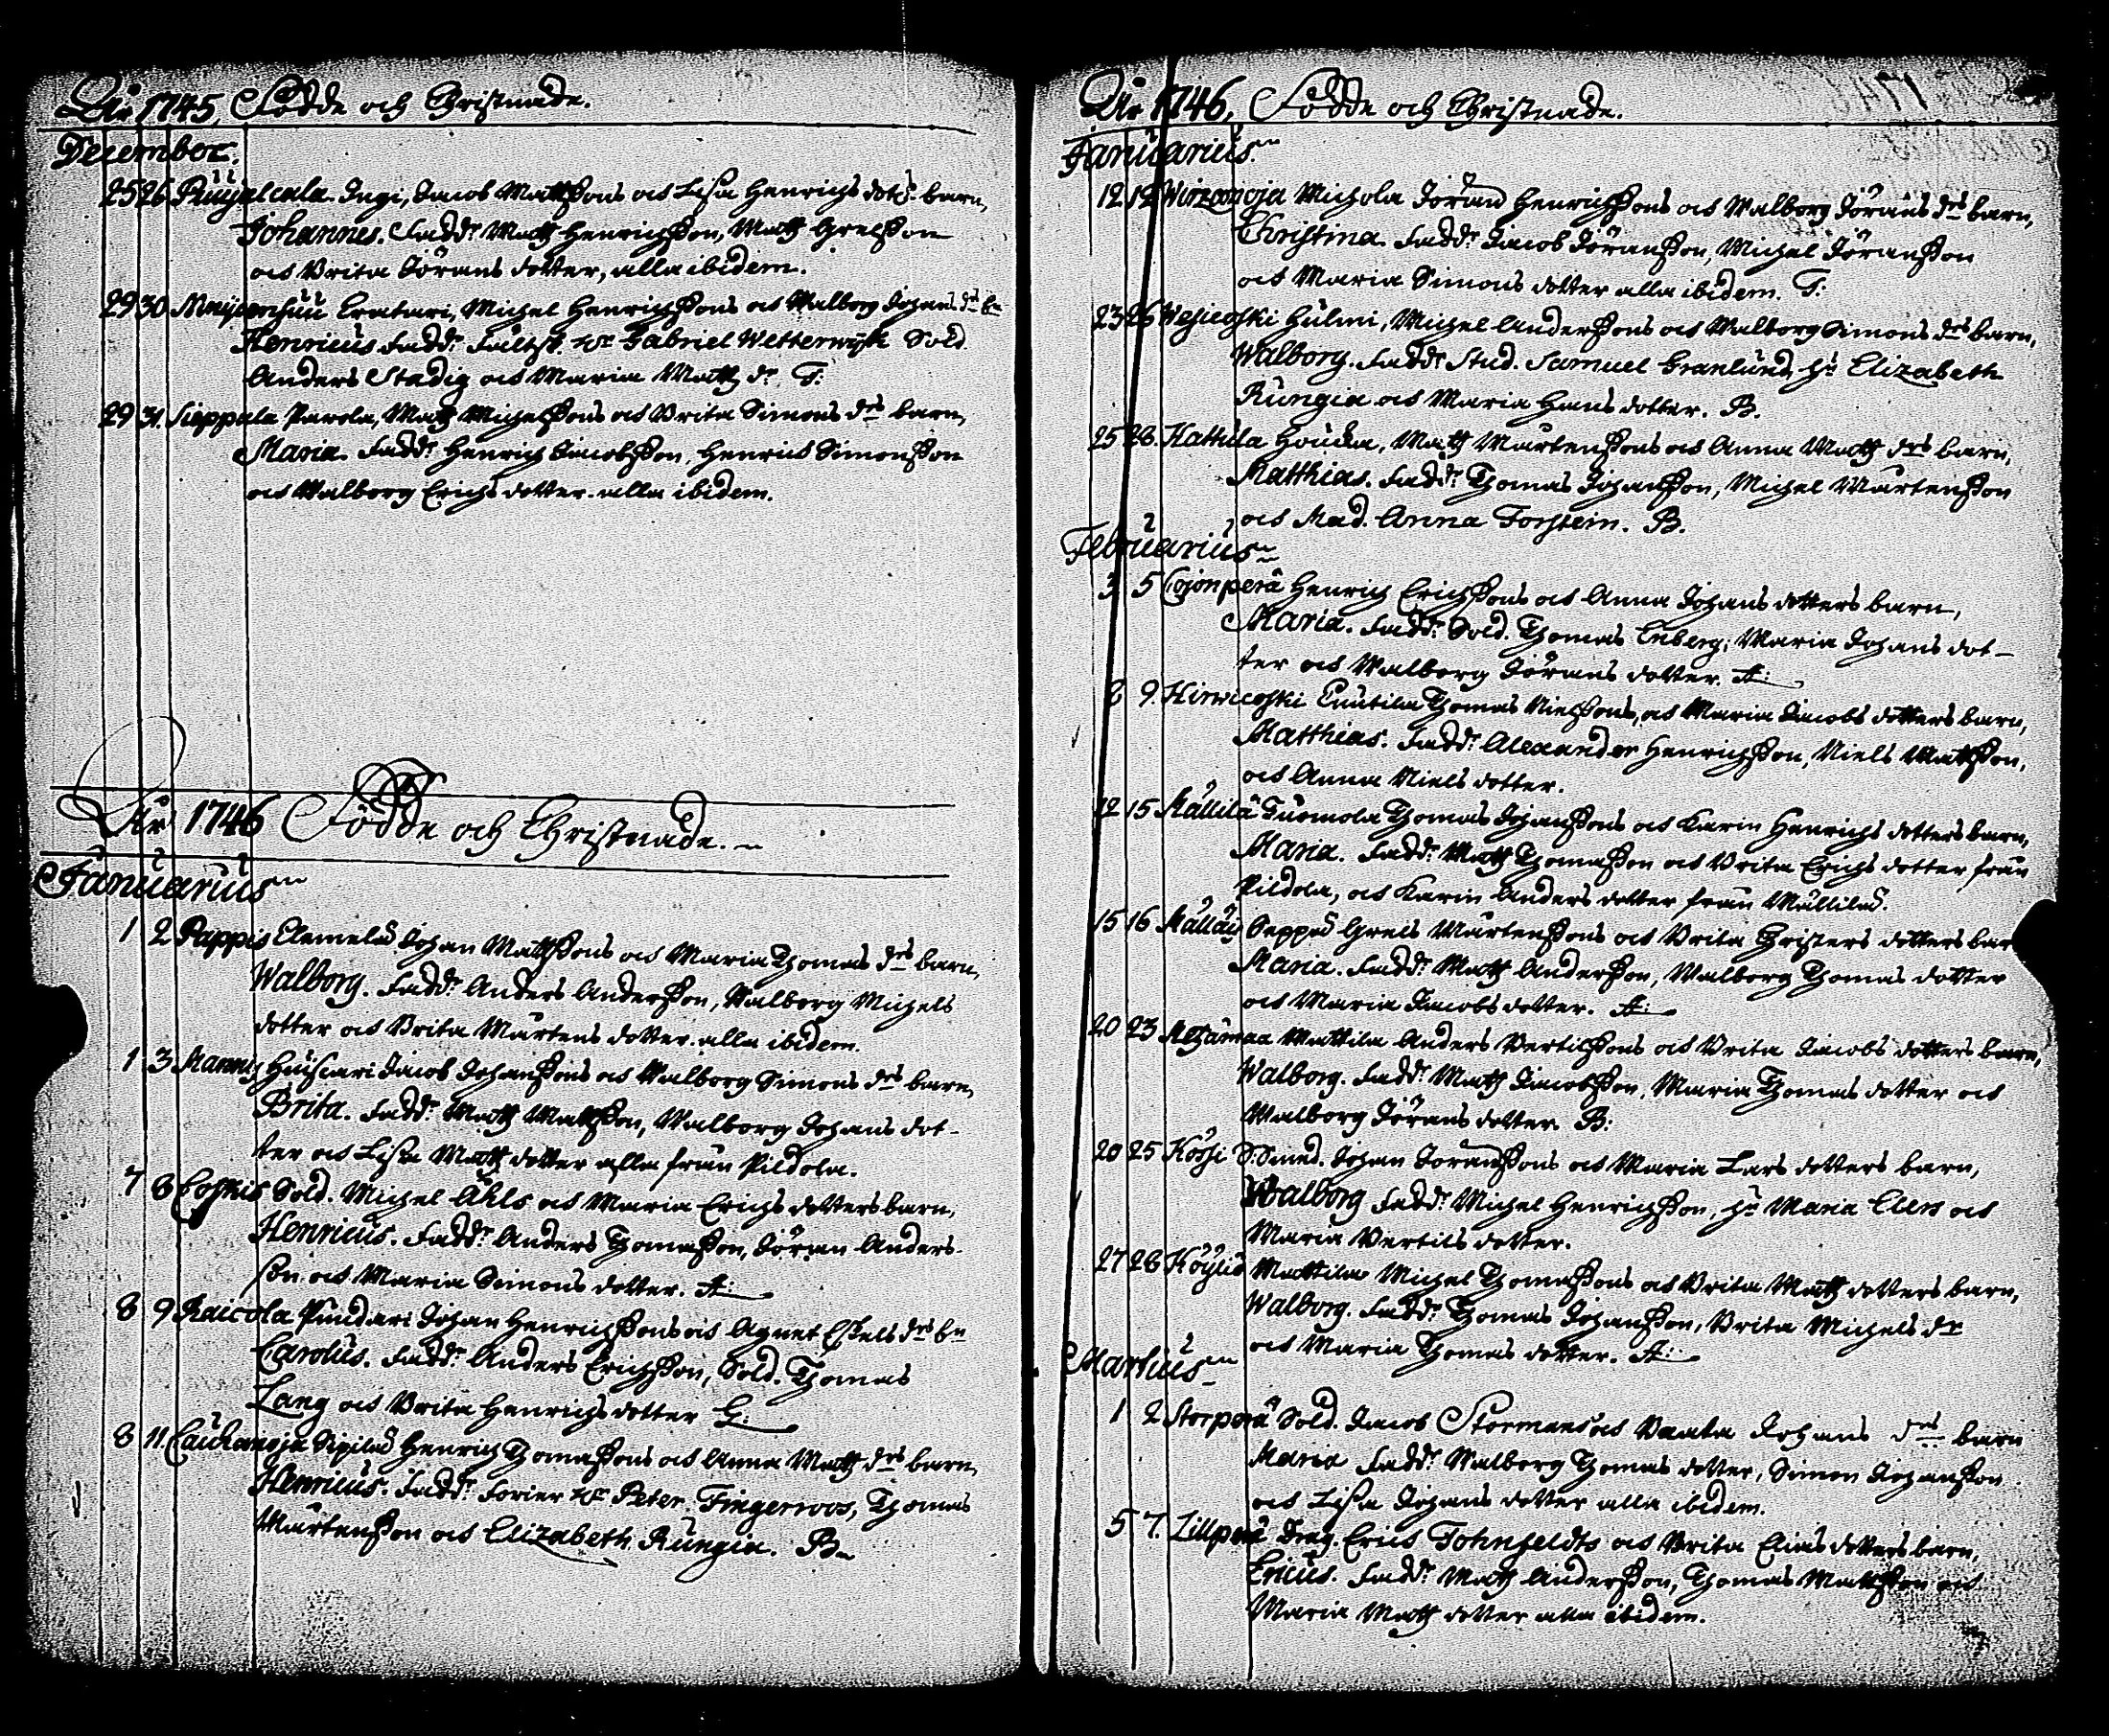 Åhr 1745. Födde och Christnade.
December.
25 26 Ingi, Jacob Mattssons och Lisa Henrichs dotrs barn,
Johannes. Faddr Matts Henrichsson, Matts Grelsson
och Brita Jörans dotter, alla ibidem.
29 30 Eraturi, Michel Henrichssons och Walborg Johans drs bn
Henricus Faddr Gabriel Wetterwyk Sold.
Anders Stadig och Maria Matts dr. T:
29 31. Sieppala Parola, Matts Michelssons och Brita Simons drs barn,
Maria. Faddr Henrich Jacobsson, Henrich Simonsson
och Walborg Erichs dotter. alla ibidem.
Åhr 1746 Födde och Christnade.
Januarius
1 2 Pappis Clemelä Johan Mattssons och Maria Thomas drs barn,
Walborg. Faddr Anders Andersson, Walborg Michels
dotter och Brita Mårtens dotter. alla ibidem.
1 3 Mannis Huiscari Jacob Johanssons och Walborg Simons drs barn,
Brita. Faddr Matts Mattsson, Walborg Johans dot-
ter och Lisa Matts dotter alla från Pildola.
7 8 Coskis Sold. Michel Åhls och Maria Erichs dotters barn,
Henricus. Faddr Anders Thomasson, Jöran Anders-
son och Maria Simons dotter. A:
8 9 Raicola Pundari Johan Henrichssons och Agnet Eskels drs bn
Carolus. Faddr Anders Erichsson, Sold. Thomas
Lang och Brita Henrichs dotter G:
8 11. Caukanoja Sipilä Henrich Thomassons och Anna Matts drs barn,
Henricus. Faddr Forier Hr Peter Fingerroos, Thomas
Mårtensson och Elizabeth Rungia. B
Åhr 1746. Födde och Christnade.
Januarius
12 12 Wirzanoja Michola Jöran Henrichssons och Walborg Jörans drs barn,
Christina. Faddr Jacob Jöransson, Michel Jöransson
och Maria Simons dotter alla ibidem. T:
23 26 Wesicoski Hulmi, Michel Anderssons och Walborg Simons drs barn,
Walborg. Faddr Stud. Samuel Granlund, Hu Elizabeth
Rungia och Maria Hans dotter. B.
25 28. Kattila Houcka, Matts Mårtenssons och Anna Matts drs barn,
Matthias. Faddr Thomas Johansson, Michel Mårtensson
och Mad. Anna Forstein. B.
Februarius
3 5 Cojonperä Henrich Erichssons och Anna Johans dotters barn,
Maria. Faddr Sold. Thomas Enberg, Maria Johans dot-
ter och Walborg Jörans dotter. A:
8 9. Hirwicoski Cuutila Thomas Nielssons, och Maria Jacobs dotters barn,
Matthias. Faddr Alexander Henrichsson, Niels Mattsson,
och Anna Niels dotter.
12 15 Mällilä Tuomola Thomas Johanssons och Karin Henrichs dotters barn,
Maria. Faddr Matts Thomasson och Brita Erichs dotter från
Pildola, och Karin Anders dotter från Mällilä.
15 16 Seppä Grels Mårtenssons och Brita Christers dotters bar
Maria. Faddr Matts Andersson, Walborg Thomas dotter
och Maria Jacobs dotter. A:
20 23 Metzämaa Mattila Anders Bertilssons och Brita Jacobs dotters barn,
Walborg. Faddr Matts Jacobsson, Maria Thomas dotter och
Walborg Jörans dotter. B:
20 25 Kössi S:Smed. Johan Joranssons och Maria Lars dotters barn,
Walborg Faddr Michel Henrichsson, Hu Maria Claes och
Maria Bertils dotter.
27 28 Köyliö Mattila Michel Thomassons och Brita Matts dotters barn,
Walborg. Faddr Thomas Johansson, Brita Michels dr
och Maria Thomas dotter. A:
Martius
1 2 Storperä Sold. Jacob Stormans och Beata Johans drs barn
Maria Faddr Walborg Thomas dotter, Simon Johansson
och Lisa Johans dotter alla ibidem.
5 7. Lillperä Drag. Erics Tohnfeldts och Brita Elias dotters barn,
Ericus. Faddr Matts Andersson, Thomas Mattsson och
Maria Matts dotter alla ibidem.